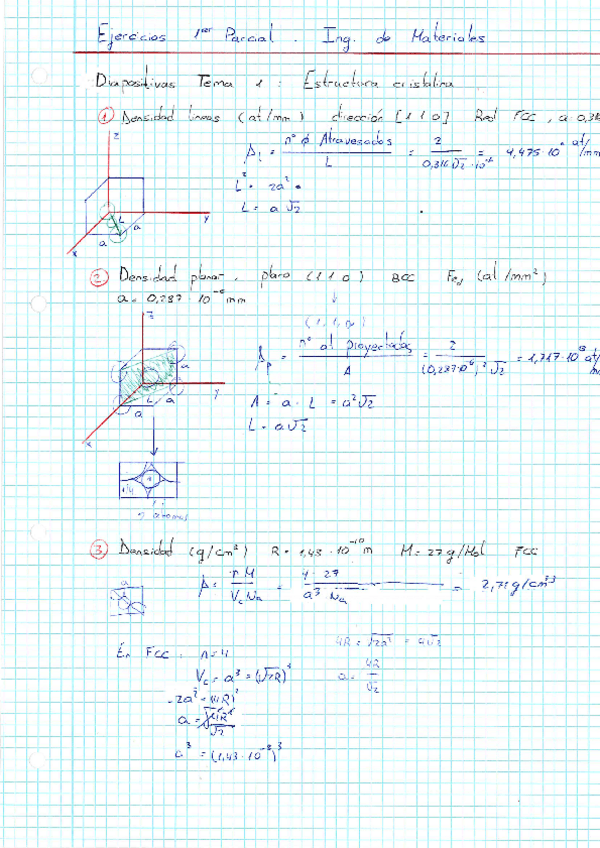 Ejercicios 1er Parcial. Ing. de Materiales
Diapositivas Tema 1: Estructura cristalina
① Densidad lineas (at/mm) dirección [110] Red FCC, a=0,316
z
ρl = nº Ф Atravesados / L = 2 / 0,316√2·10⁻⁶ = 4,475·10⁶ at/mm
L² = 2a²
L = a√2
L
a
a
y
x
② Densidad planar. plano (110) BCC Fe (at/mm²)
a = 0,287·10⁻⁶ mm
↓
z
ρp = nº at proyectados / A = 2 / (0,287·10⁻⁶)²√2 = 1,717·10
A = a · L = a²√2
L = a√2
a
a
L
a
y
x
1/4
1
③ Densidad (g/cm³) R = 1,43·10⁻¹⁰ m M = 27 g/Mol FCC
a
ρ = n M / Vc Na = 4·27 / a³ Na = 2,71 g/cm³
4R = √2a² = a√2
En FCC, n=4
a = 4R / √2
2a² = (4R)²
a³ = (1,43·10⁻⁸)³